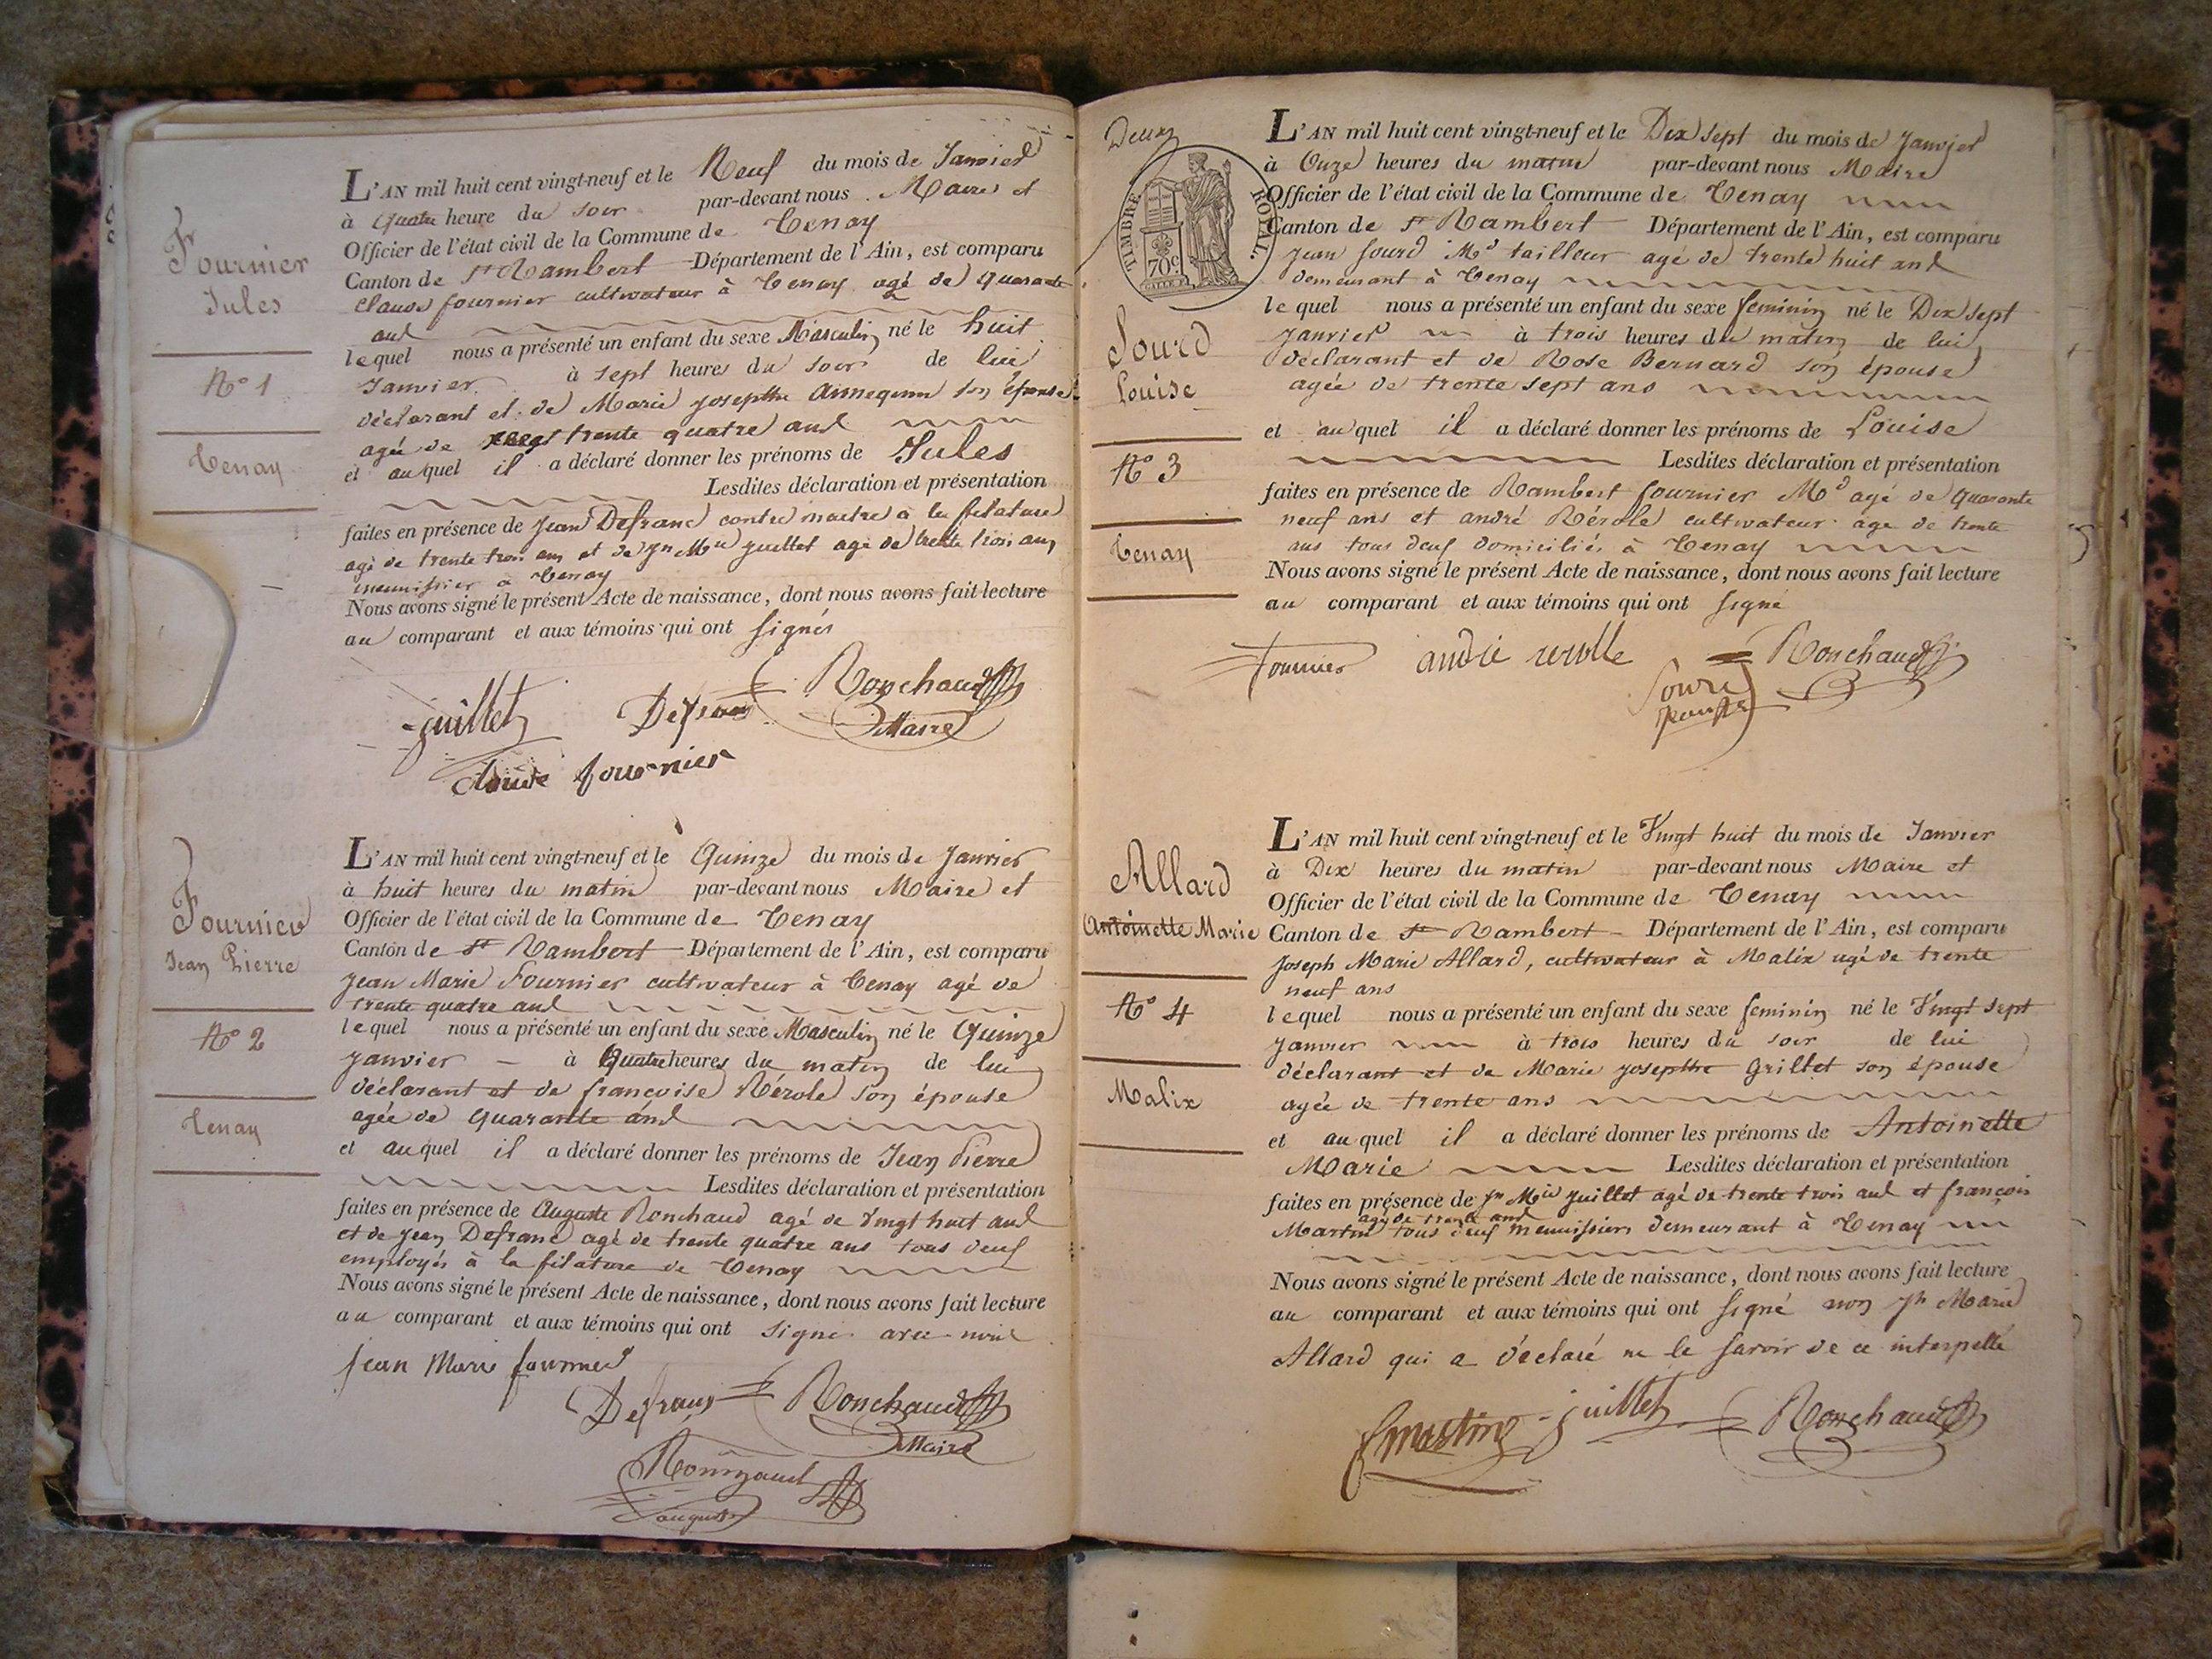 Fournier
Jules
N° 1
Tenay
L'AN mil huit cent vingt-neuf et le Neuf du mois de Janvier
à quatre heure du soir par-devant nous Maire et
Officier de l'état civil de la Commune de Tenay
Canton de St Rambert Département de l'Ain, est comparu
Claude fournier cultivateur à Tenay agé de quarante
ans
lequel nous a présenté un enfant du sexe Masculin né le huit
Janvier à sept heures du soir de lui
déclarant et de Marie josepthe son épouse
agée de trente quatre ans
et auquel il a déclaré donner les prénoms de Jules
Lesdites déclaration et présentation
faites en présence de Jean Defranc contre maitre à la filature
agé de trente trois ans et de jn Mie juillet agé de trente trois ans
menuisier à Tenay
Nous avons signé le présent Acte de naissance, dont nous avons fait lecture
au comparant et aux témoins qui ont signés
juillet Defranc Ronchaud
Maire
Claude fournier
Fournier
Jean Pierre
N° 2
Tenay
L'AN mil huit cent vingt-neuf et le Quinze du mois de Janvier
à huit heures du matin par-devant nous Maire et
Officier de l'état civil de la Commune de Tenay
Canton de St Rambert Département de l'Ain, est comparu
Jean Marie Fournier cultivateur à Tenay agé de
trente quatre ans
lequel nous a présenté un enfant du sexe Masculin né le Quinze
janvier à Quatre heures du matin de lui
déclarant et de françoise Rérole son épouse
agée de quarante ans
et auquel il a déclaré donner les prénoms de Jean Pierre
Lesdites déclaration et présentation
faites en présence de Auguste Ronchaud agé de vingt huit ans
et de Jean Defranc agé de trente quatre ans tous deux
employés à la filature de Tenay
Nous avons signé le présent Acte de naissance, dont nous avons fait lecture
au comparant et aux témoins qui ont signé avec nous
Jean Marie fournier
Defranc Ronchaud
Maire
Ronchaud
auguste
Deux
TIMBRE ROYAL.
70c
Sourd
Louise
N° 3
Tenay
L'AN mil huit cent vingt-neuf et le Dix sept du mois de Janvier
à Onze heures du matin par-devant nous Maire
Officier de l'état civil de la Commune de Tenay
Canton de St Rambert Département de l'Ain, est comparu
Jean Sourd Md tailleur agé de trente huit ans
demeurant à Tenay
lequel nous a présenté un enfant du sexe feminin né le Dix sept
janvier à trois heures du matin de lui
déclarant et de Rose Bernard son épouse
agée de trente sept ans
et auquel il a déclaré donner les prénoms de Louise
Lesdites déclaration et présentation
faites en présence de Rambert fournier Md agé de quarante
neuf ans et andré Rérole cultivateur age de trente
ans tous deux domiciliés à Tenay
Nous avons signé le présent Acte de naissance, dont nous avons fait lecture
au comparant et aux témoins qui ont signé
fournier andré rerolle Ronchaud
Sourd
Allard
Antoinette Marie
N° 4
Malix
L'AN mil huit cent vingt-neuf et le Vingt huit du mois de Janvier
à Dix heures du matin par-devant nous Maire et
Officier de l'état civil de la Commune de Tenay
Canton de St Rambert Département de l'Ain, est comparu
Joseph Marie Allard, cultivateur à Malix agé de trente
neuf ans
lequel nous a présenté un enfant du sexe feminin né le Vingt sept
janvier à trois heures du soir de lui
déclarant et de Marie josepthe Grillet son épouse
agée de trente ans
et auquel il a déclaré donner les prénoms de Antoinette
Marie Lesdites déclaration et présentation
faites en présence de jn Mie juillet agé de trente trois ans et françois
agé de trente ans
Martin tous deux menuisiers demeurant à Tenay
Nous avons signé le présent Acte de naissance, dont nous avons fait lecture
au comparant et aux témoins qui ont signé non jh Marie
Allard qui a déclaré ne le savoir de ce interpellé
fmartin juillet Ronchaud